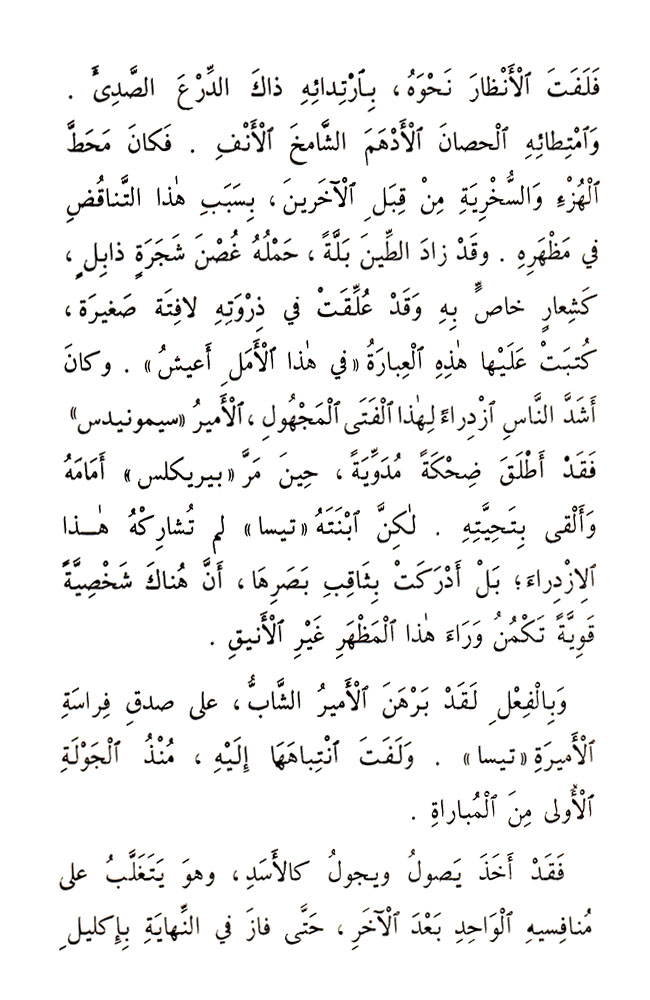 فَلَفَتَ ٱلْأَنْظارَ نَحْوَهُ ، بِٱرْتِدائِهِ ذاكَ الدِّرْعَ الصَّدِئَ .
وَٱمْتِطائِهِ ٱلْحصانَ ٱلْأَدْهَمَ الشَّامخَ ٱلْأَنْفِ . فَكانَ مَحَطَّ
ٱلْهُزْءِ وَالسُّخْرِيَةِ مِنْ قِبَلِ ٱلْآخَرينَ ، بِسَبَبِ هٰذا التَّناقُضِ
في مَظْهَرِهِ . وقَدْ زادَ الطِّينَ بَلَّةً ، حَمْلُهُ غُصْنَ شَجَرَةٍ ذابِلٍ ،
كَشِعارٍ خاصٍّ بِهِ وَقَدْ عُلِّقَتْ في ذِرْوَتِهِ لافِتَة صَغيرَة ،
كُتبَتْ عَلَيْها هٰذِهِ ٱلْعِبارَةُ «في هٰذا ٱلْأَمَلِ أَعيشُ» . وكانَ
أَشَدَّ النَّاسِ ٱزْدِراءً لِهٰذا ٱلْفَتَى ٱلْمَجْهُولِ ، ٱلْأَميرُ «سيمونيدس»
فَقَدْ أَطْلَقَ ضِحْكَةً مُدَوِّيَةً ، حِينَ مَرَّ «بيريكلس» أَمَامَهُ
وَأَلْقى بِتَحِيَّتِهِ . لٰكِنَّ ٱبْنَتَهُ «تيسا» لم تُشارِكْهُ هٰـذا
ٱلِازْدِراءَ ؛ بَلْ أَدْرَكَتْ بِثَاقِبِ بَصَرِهَا ، أَنَّ هُناكَ شَخْصِيَّةً
قَوِيَّةً تَكْمُنُ وَرَاءَ هٰذا ٱلْمَظْهَرِ غَيْرِ ٱلْأَنيقِ .
وَبِٱلْفِعْلِ لَقَدْ بَرْهَنَ ٱلْأَميرُ الشَّابُّ ، على صدقِ فِراسَةِ
ٱلْأَميرَةِ «تيسا» . وَلَفَتَ ٱنْتِباهَهَا إِلَيْهِ ، مُنْذُ ٱلْجَوْلَةِ
ٱلْأُولى مِنَ ٱلْمُباراةِ .
فَقَدْ أَخَذَ يَصولُ ويجولُ كالأَسَدِ ، وهوَ يَتَغَلَّبُ على
مُنافِسيهِ ٱلْوَاحِدِ بَعْدَ ٱلْآخَرِ ، حَتَّى فازَ في النِّهايَةِ بِإِكليلِ